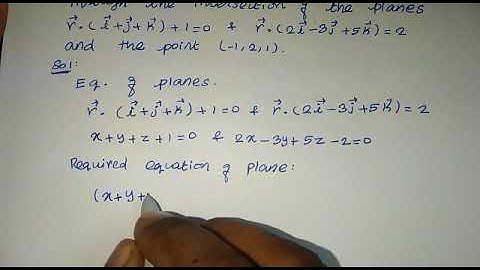 through the intersection of the planes
r⃗·(i⃗+j⃗+k⃗)+1=0 & r⃗·(2i⃗-3j⃗+5k⃗)=2
and the point (-1,2,1).
Sol:
Eq. of planes.
r⃗·(i⃗+j⃗+k⃗)+1=0 & r⃗·(2i⃗-3j⃗+5k⃗)=2
x+y+z+1=0 & 2x-3y+5z-2=0
Required equation of plane:
(x+y+